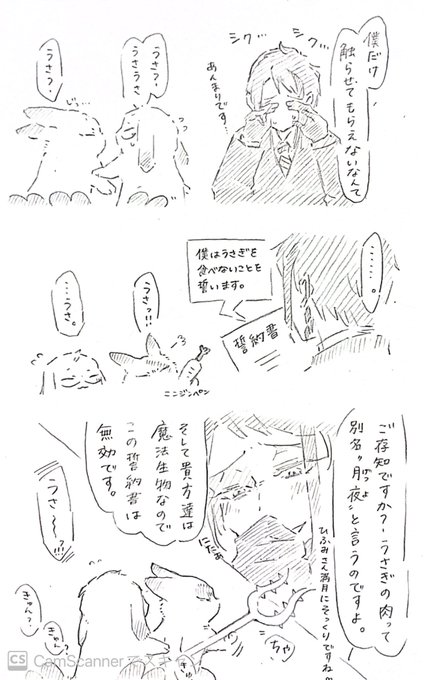 僕だけ
触らせてもらえないなんて
シク…
シク…
あんまりです…
うさ？
うさうさ
うさ？
じ…
………。
僕はうさぎを
食べないことを
誓います。
誓約書
うさっ!!!
……うさ。
ニンジンペン
ご存知ですか？うさぎの肉って
別名"月夜"と言うのですよ。
げつよ
ひふみさん満月にそっくりですね
そして貴方達は
魔法生物なので
この誓約書は
無効です。
にたぁ
うさ〜〜っ?!!
ちゃ
きゃん?
きゃん
CS CamScanner でスキ